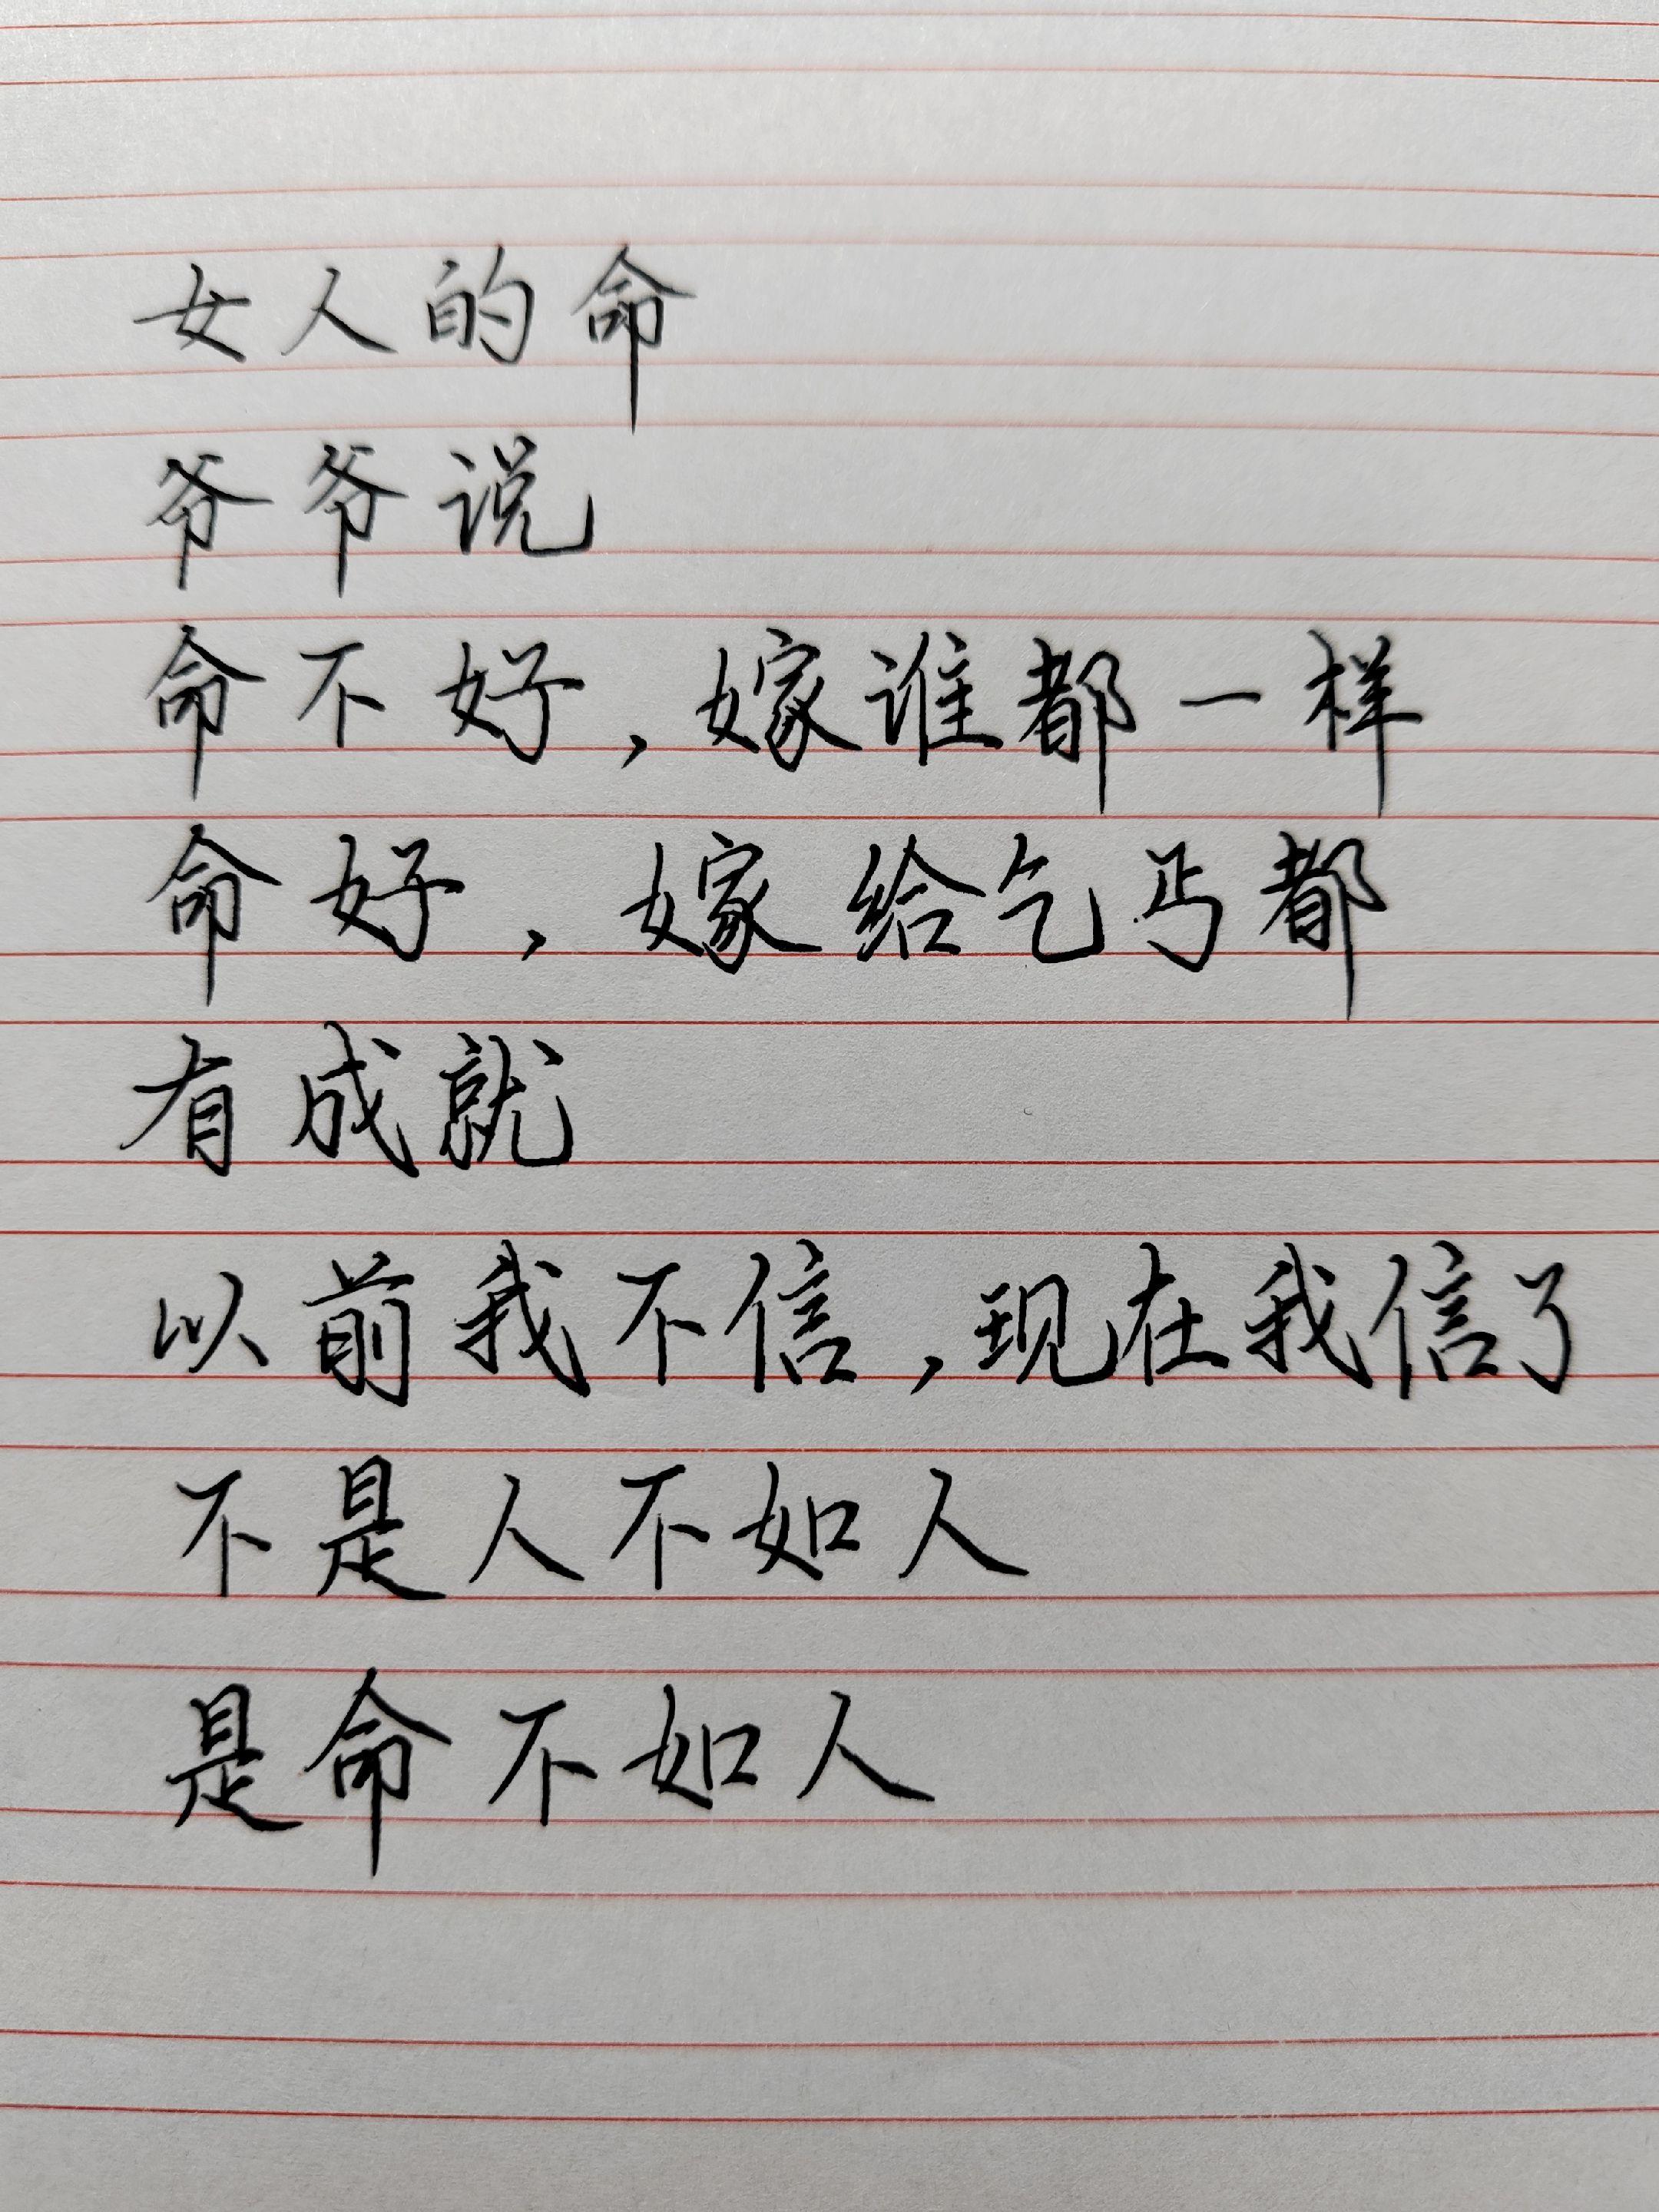 女人的命
爷爷说
命不好,嫁谁都一样
命好,嫁给乞丐都
有成就
以前我不信,现在我信了
不是人不如人
是命不如人